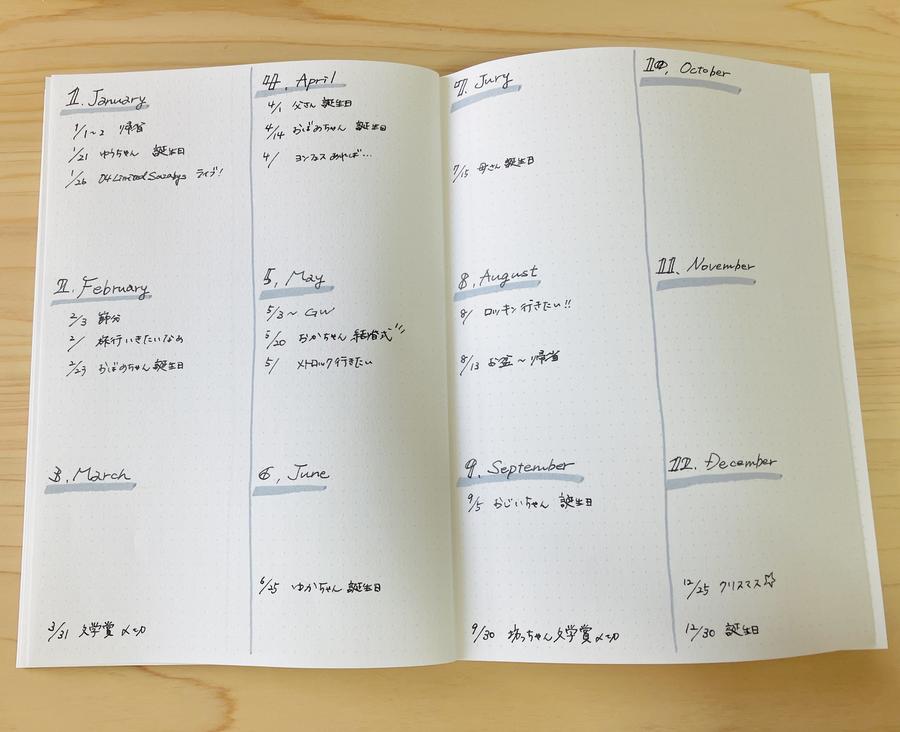 1. January
1/1~2 帰省
1/21 ゆうちゃん 誕生日
1/26 04 Limited Sazabys ライブ!
2. February
2/3 節分
2/ 旅行いきたいなぁ
2/23 おばあちゃん 誕生日
3. March
3/31 文学賞 〆切
4. April
4/1 父さん 誕生日
4/14 おばあちゃん 誕生日
4/ ヨンフェスあれば…
5. May
5/3~ GW
5/20 おかちゃん 結婚式
5/ メトロック行きたい
6. June
6/25 ゆかちゃん 誕生日
7. Jury
7/15 母さん 誕生日
8. August
8/ ロッキン行きたい!!
8/13 お盆~帰省
9. September
9/5 おじいちゃん 誕生日
9/30 坊っちゃん文学賞〆切
10. October
11. November
12. December
12/25 クリスマス☆
12/30 誕生日